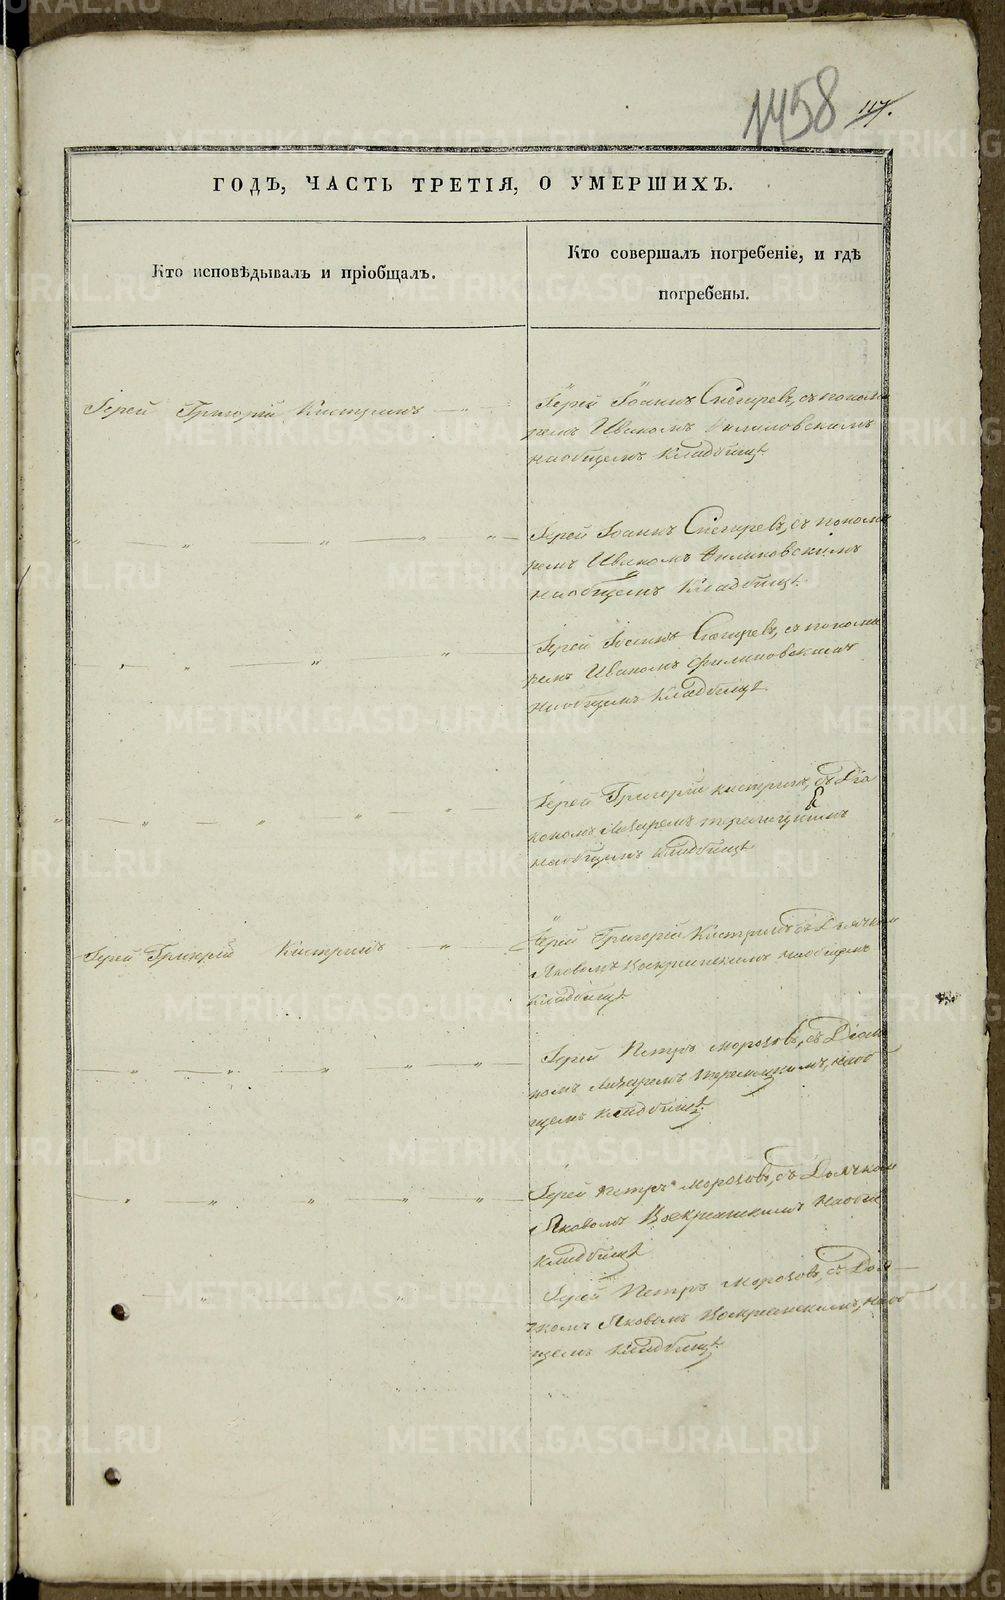 1458 117.
ГОДЪ, ЧАСТЬ ТРЕТІЯ, О УМЕРШИХЪ.
Кто исповѣдывалъ и пріобщалъ.
Кто совершалъ погребеніе, и гдѣ
погребены.
Іерей Григорій Кистринъ
Іерей Іоаннъ Снегиревъ, съ понома
ремъ Иваномъ Филиповскимъ
на общемъ кладбищѣ
Іерей Іоаннъ Снегиревъ, съ понома
ремъ Иваномъ Филиповскимъ
на общемъ кладбищѣ.
Іерей Іоаннъ Снегиревъ, съ понома
ремъ Иваномъ Филиповскимъ
на общемъ кладбищѣ
Іерей Григорій Кистринъ, съ Діа
кономъ Лазаремъ
на общемъ кладбищѣ
Іерей Григорій Кистринъ
Іерей Григорій Кистринъ съ Дьячкомъ
Яковомъ Воскресенскимъ на общемъ
кладбищѣ
Іерей Петръ Морозовъ, съ Діако
номъ Лазаремъ на об
щемъ кладбищѣ
Іерей Петръ Морозовъ, съ Дьячкомъ
Яковомъ Воскресенскимъ на общемъ
кладбищѣ
Іерей Петръ Морозовъ, съ Дья
чкомъ Яковомъ Воскресенскимъ, на об
щемъ кладбищѣ.
METRIKI.GASO-URAL.RU